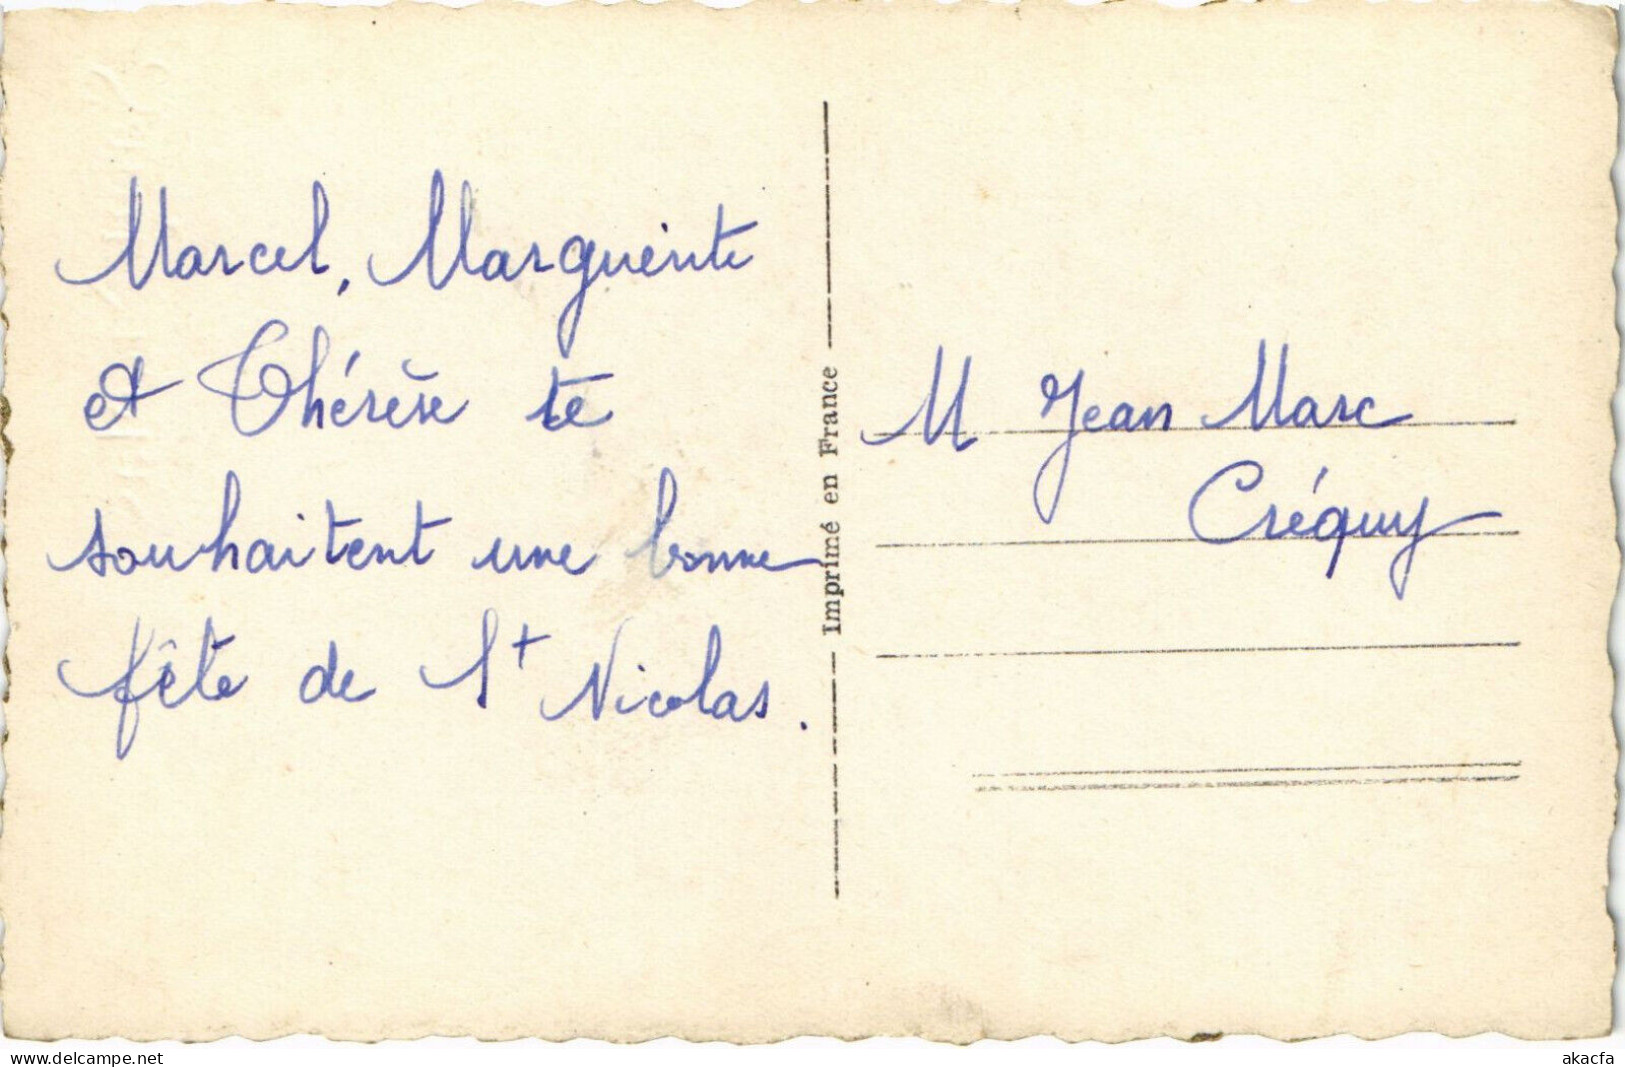 Marcel, Marguerite
et Thérèse te
souhaitent une bonne
fête de St Nicolas.
Imprimé en France
M Jean Marc
Créquy
www.delcampe.net
akacfa